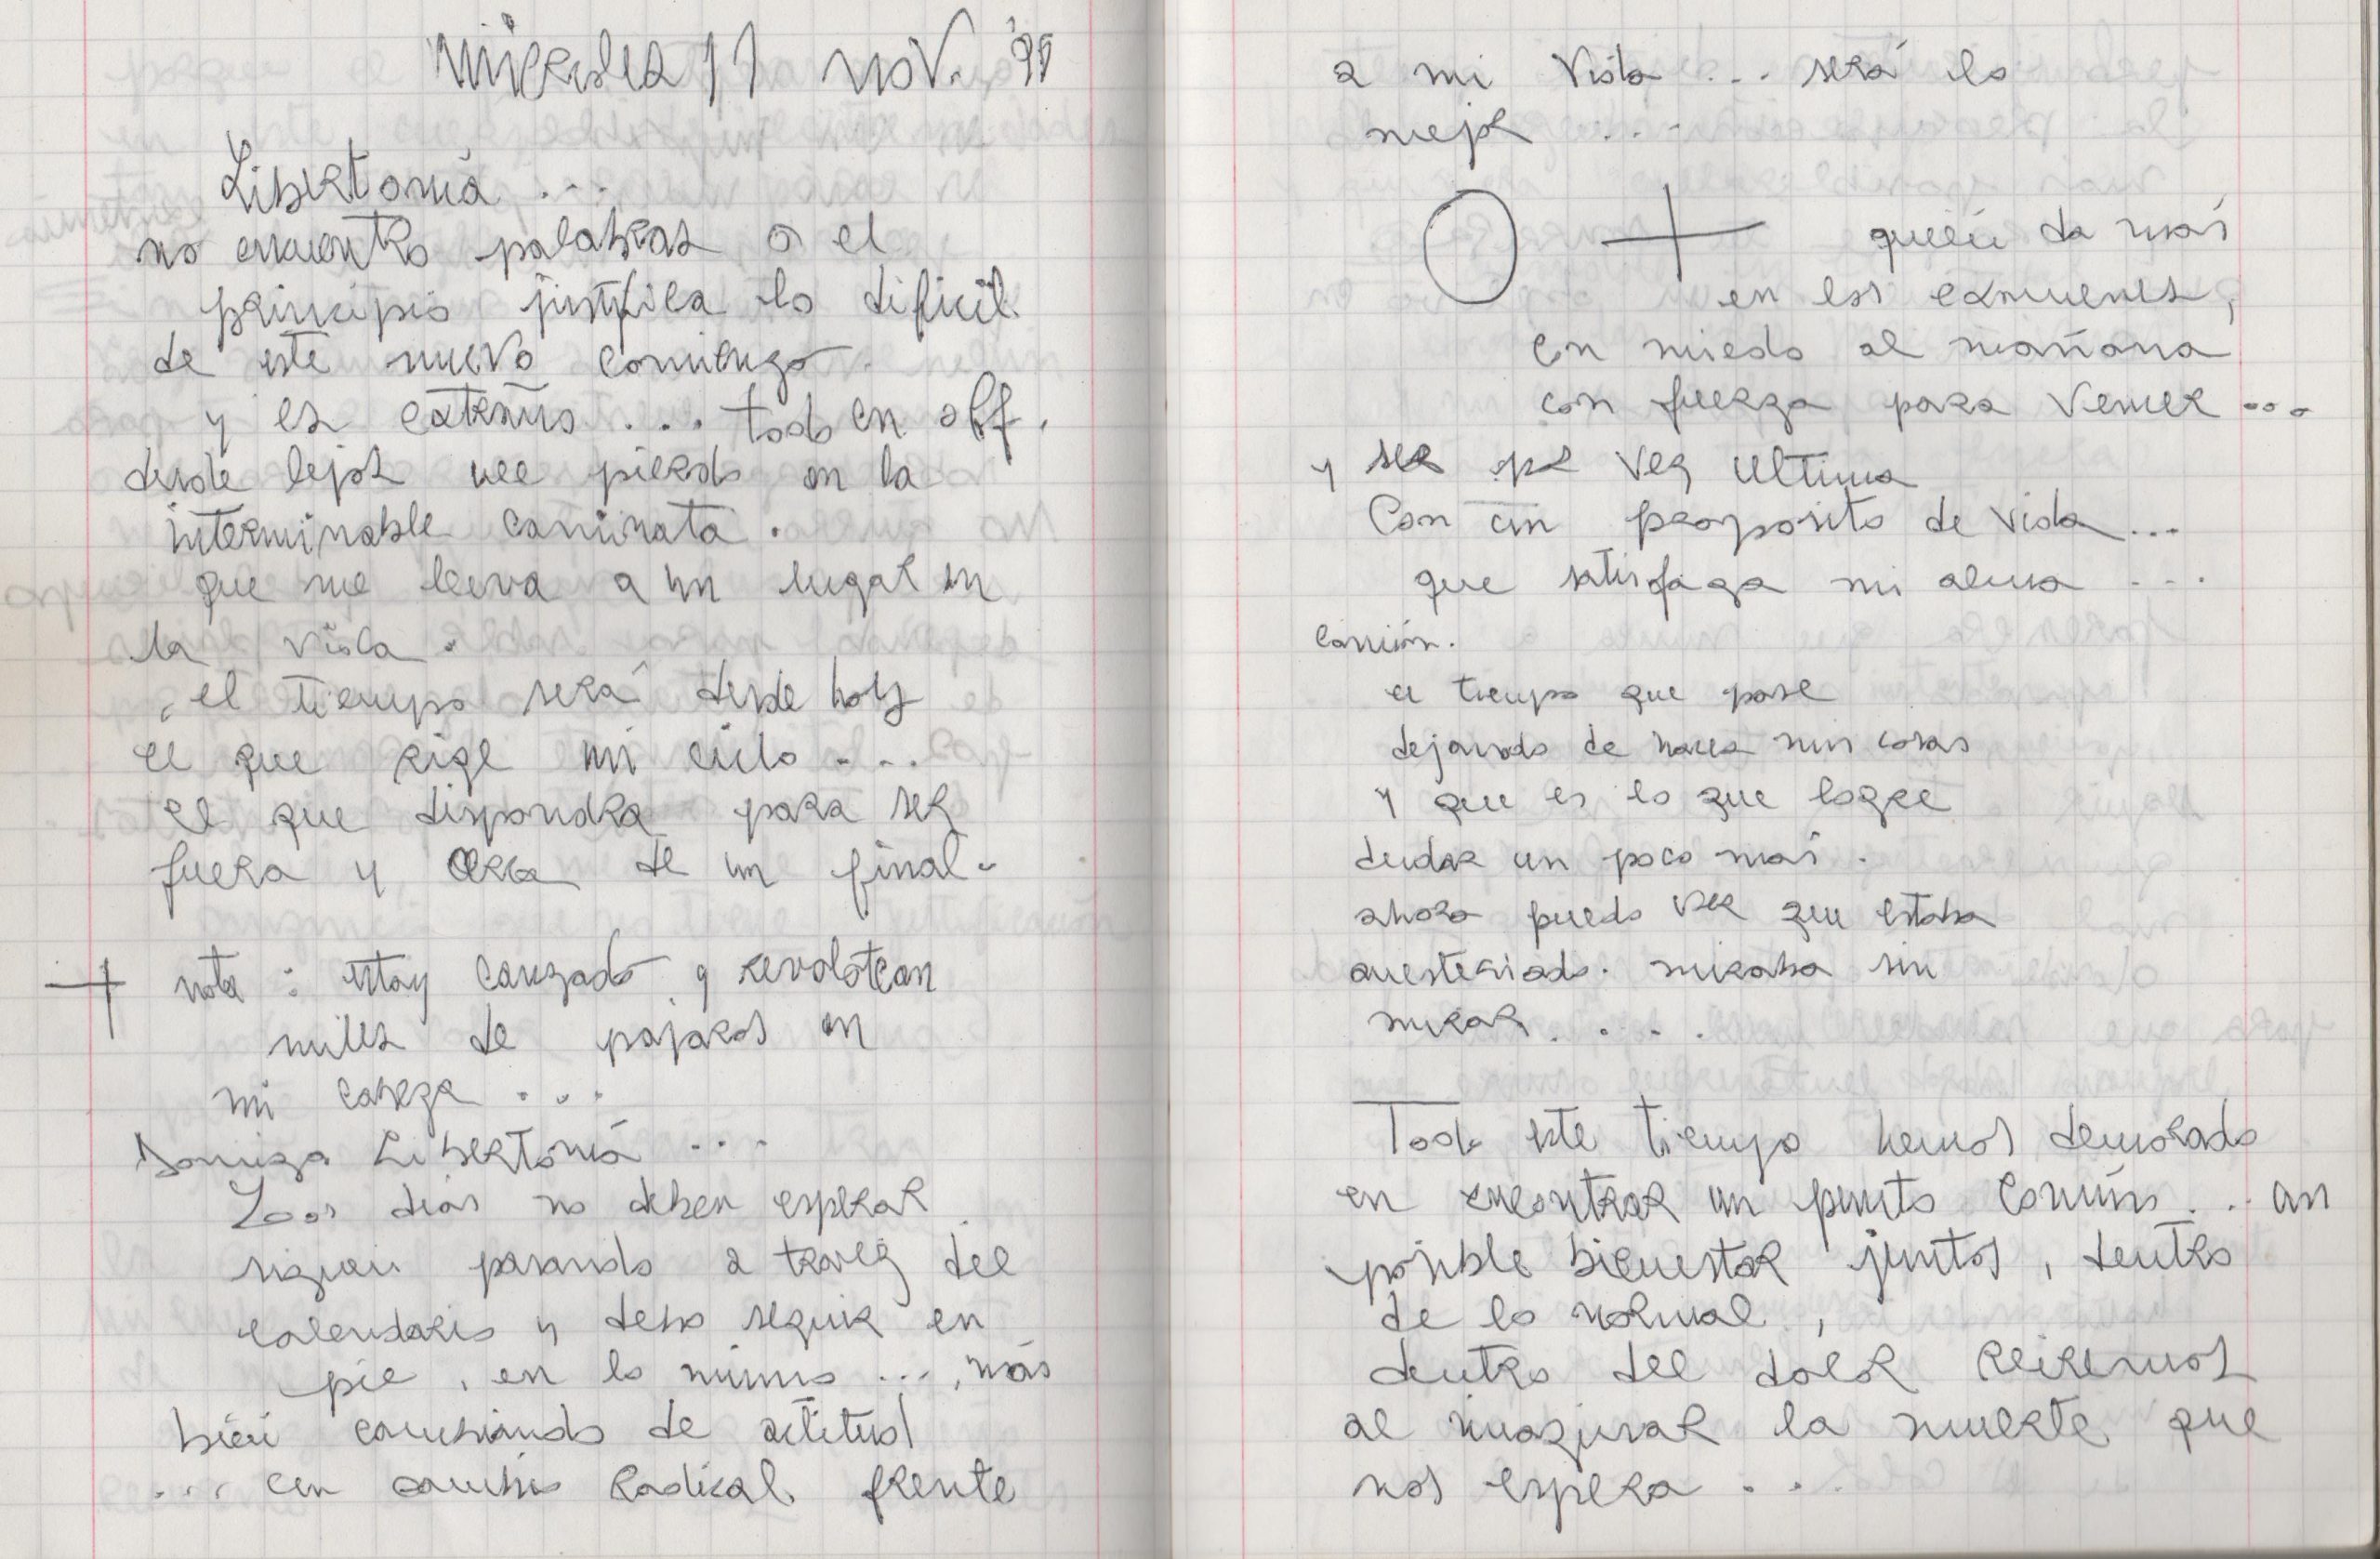 Miercoles 11 nov. '98
Libertomia ...
no encuentro palabras o el
principio justifica lo dificil
de este nuevo comienzo.
y es extraño ... todo en off.
desde lejos me pierdo en la
interminable caminata.
que me lleva a un lugar en
la vida.
el tiempo sera desde hoy
el que rige mi ciclo ...
el que dispondra para ser
fuera y de un final.
nota : estoy canzado y revolotean
miles de pajaros en
mi cabeza ...
Libertomia ...
Los dias no deben esperar
sigan pasando a travez del
calendario y debo seguir en
pie, en lo mismo ..., más
bien cambiando de actitud
... un cambio radical frente
a mi vida ... será lo
mejor ...
O + quien da más
en los examenes,
un miedo al mañana
con fuerza para vencer ...
y ser por vez ultima
Con un proposito de vida ...
que satisfaga mi alma ...
el tiempo que pase
dejando de hacer mis cosas
y que es lo que logre
dudar un poco más.
ahora puedo ver que estaba
anestesiado. miraba sin
mirar. ...
Todo este tiempo hemos demorado
en encontrar un punto común ... un
posible bienestar juntos, dentro
de lo normal,
dentro del dolor reiremos
al imaginar la muerte que
nos espera ...